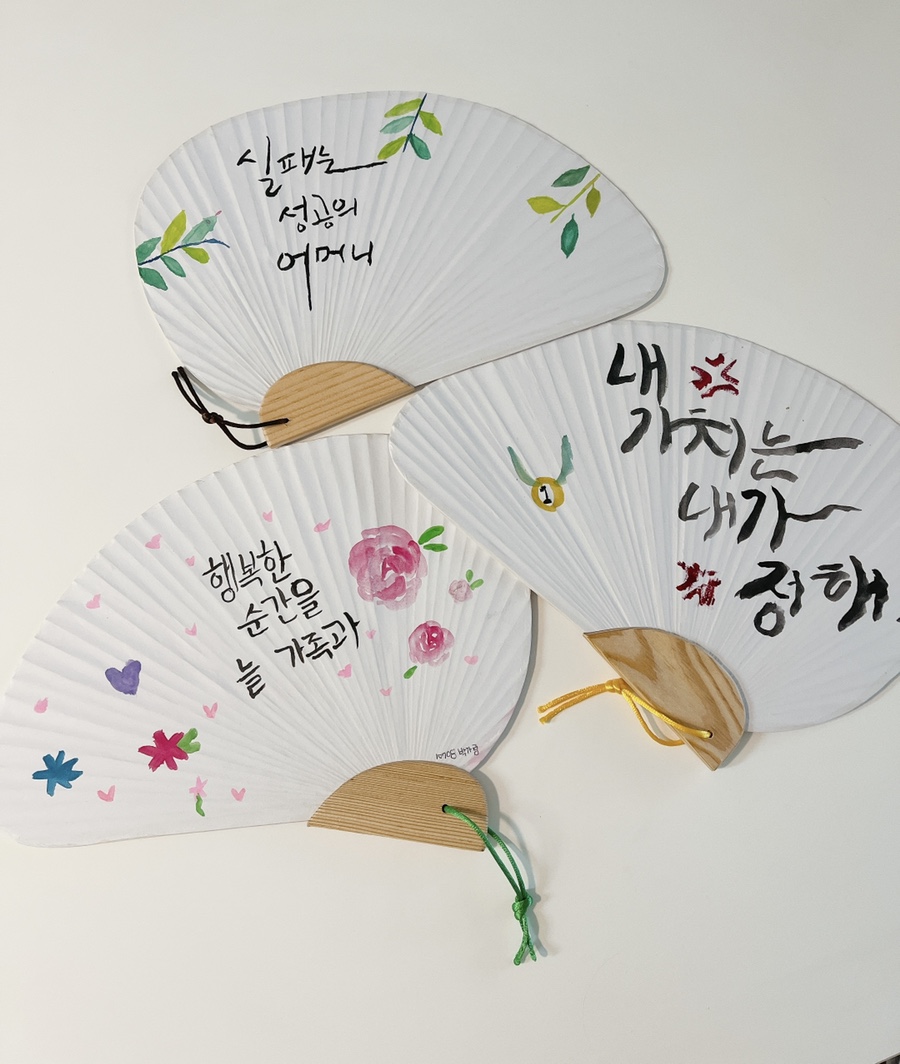 실패는
성공의
어머니
내
가치는
내가
정해.
1
행복한
순간을
늘 가족과